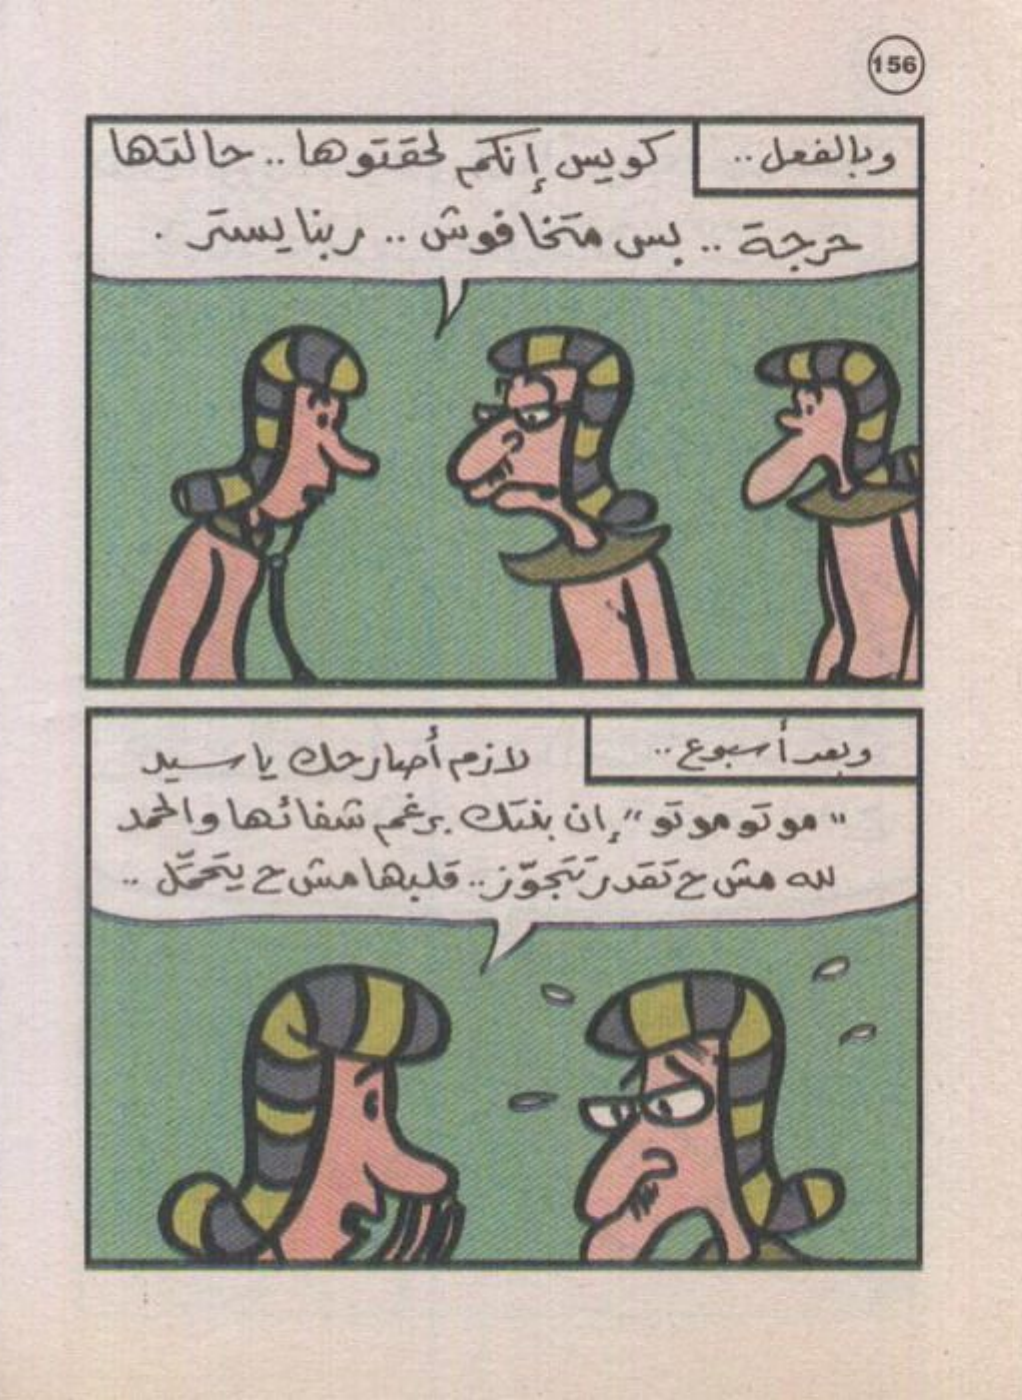 156
وبالفعل..
كويس إنكم لحقتوها.. حالتها
حرجة .. بس متخافوش .. ربنا يستر .
وبعد أسبوع..
لازم أصارحك يا سيد
"موتو موتو" إن بنتك برغم شفائها والحمد
لله مش ح تقدر تتجوّز.. قلبها مش ح يتحمّل ..